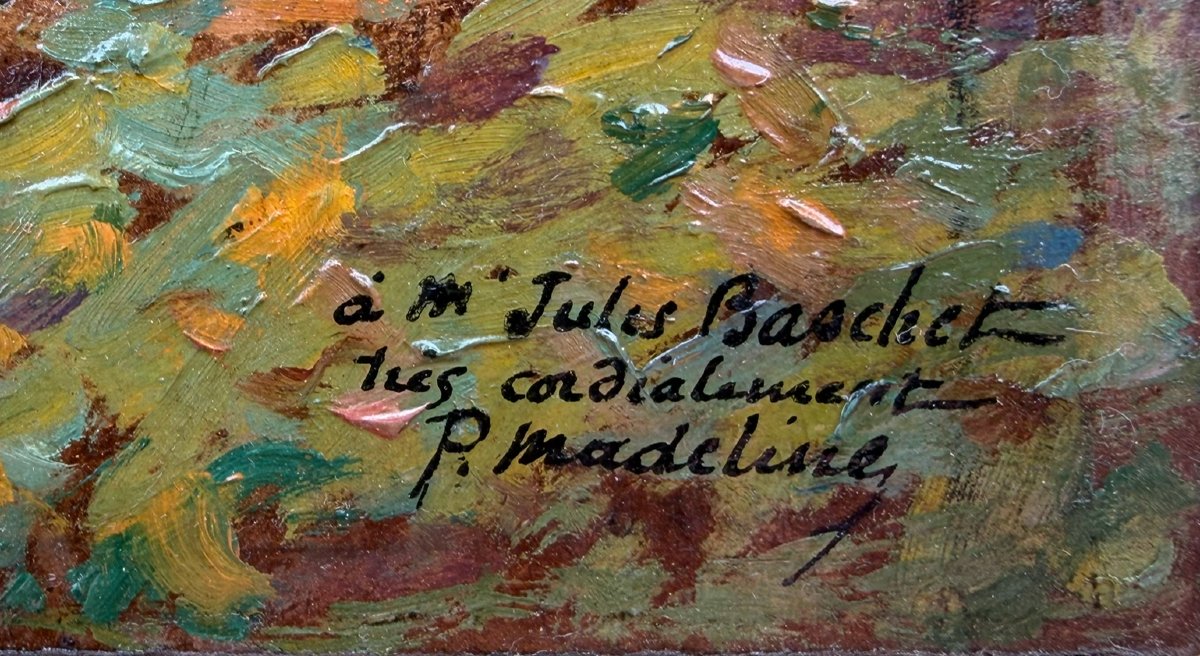 à Mr Jules Baschet
très cordialement
P. Madeline